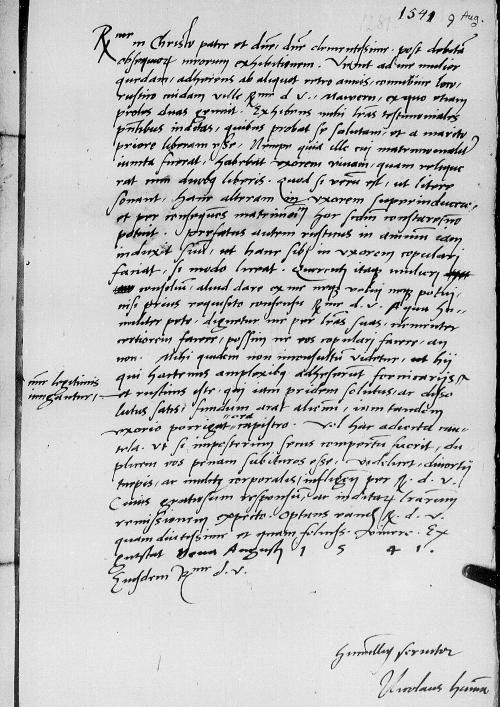 1541 9 Aug.
Rme in Christo pater et dne, dne clementissime, post debitā
obsequiorū meorum exhibitionem. Venit ad me mulier
quedam, adherens ab aliquot retro annis,
rustico cuidam ville Rme d. v. ex quo etiam
proles duas genuit. Exhibens mihi lras testimoniales
pntibus inditas, quibus probat se solutam, et a marito
priore liberam esse, Nempe quod ille cui matrimonialit
iuncta fuerat, habebat uxorem vivam, quam relique
rat cum duobus liberis. Quod si verū est, ut litere
sonant, hanc alteram in uxorem superinducere,
et per consequens matrimoniū hoc scdm
potuit. Prefatus autem rusticus in animum iam
induxit suū, ut hanc sibi in uxorem copulari
faciat, si modo liceat. Querenti itaq mulieri
consiliū, aliud dare ex me neq volui neq potui,
nisi prius requisito consensu Rme d. v. A qua hu-
militer peto, dignetur me per lras suas, clementer
certiorem facere, possim ne eos copulari facere, an
non. Mihi quidem non inconsultū videtur, ut hij
qui hactenus amplexibq adheserūt fornicarijs,
mr legitimis
iungantur,
et rusticus iste, qui iam pridem solutus, ac disso
lutus satis, fundum arat alienū, iam tandem
uxorio porrigat ora capistro. Vel hac adiecta cau-
tela, ut si imposterum secus compertū fuerit, du
plicem eos penam subituros esse, videlicet, divortij
turpis, ac mulcte corporalis, infligende per R. d. v.
Cuius gratiosum responsū, ac inditarū lrarum
remissionem expecto. Optans eandē R. d. v.
quam diutissime et quam felicissē vivere. Ex
nona Augusti 1 5 4 1.
Eiusdem Rme d. v.
humillis servitor
Nicolaus